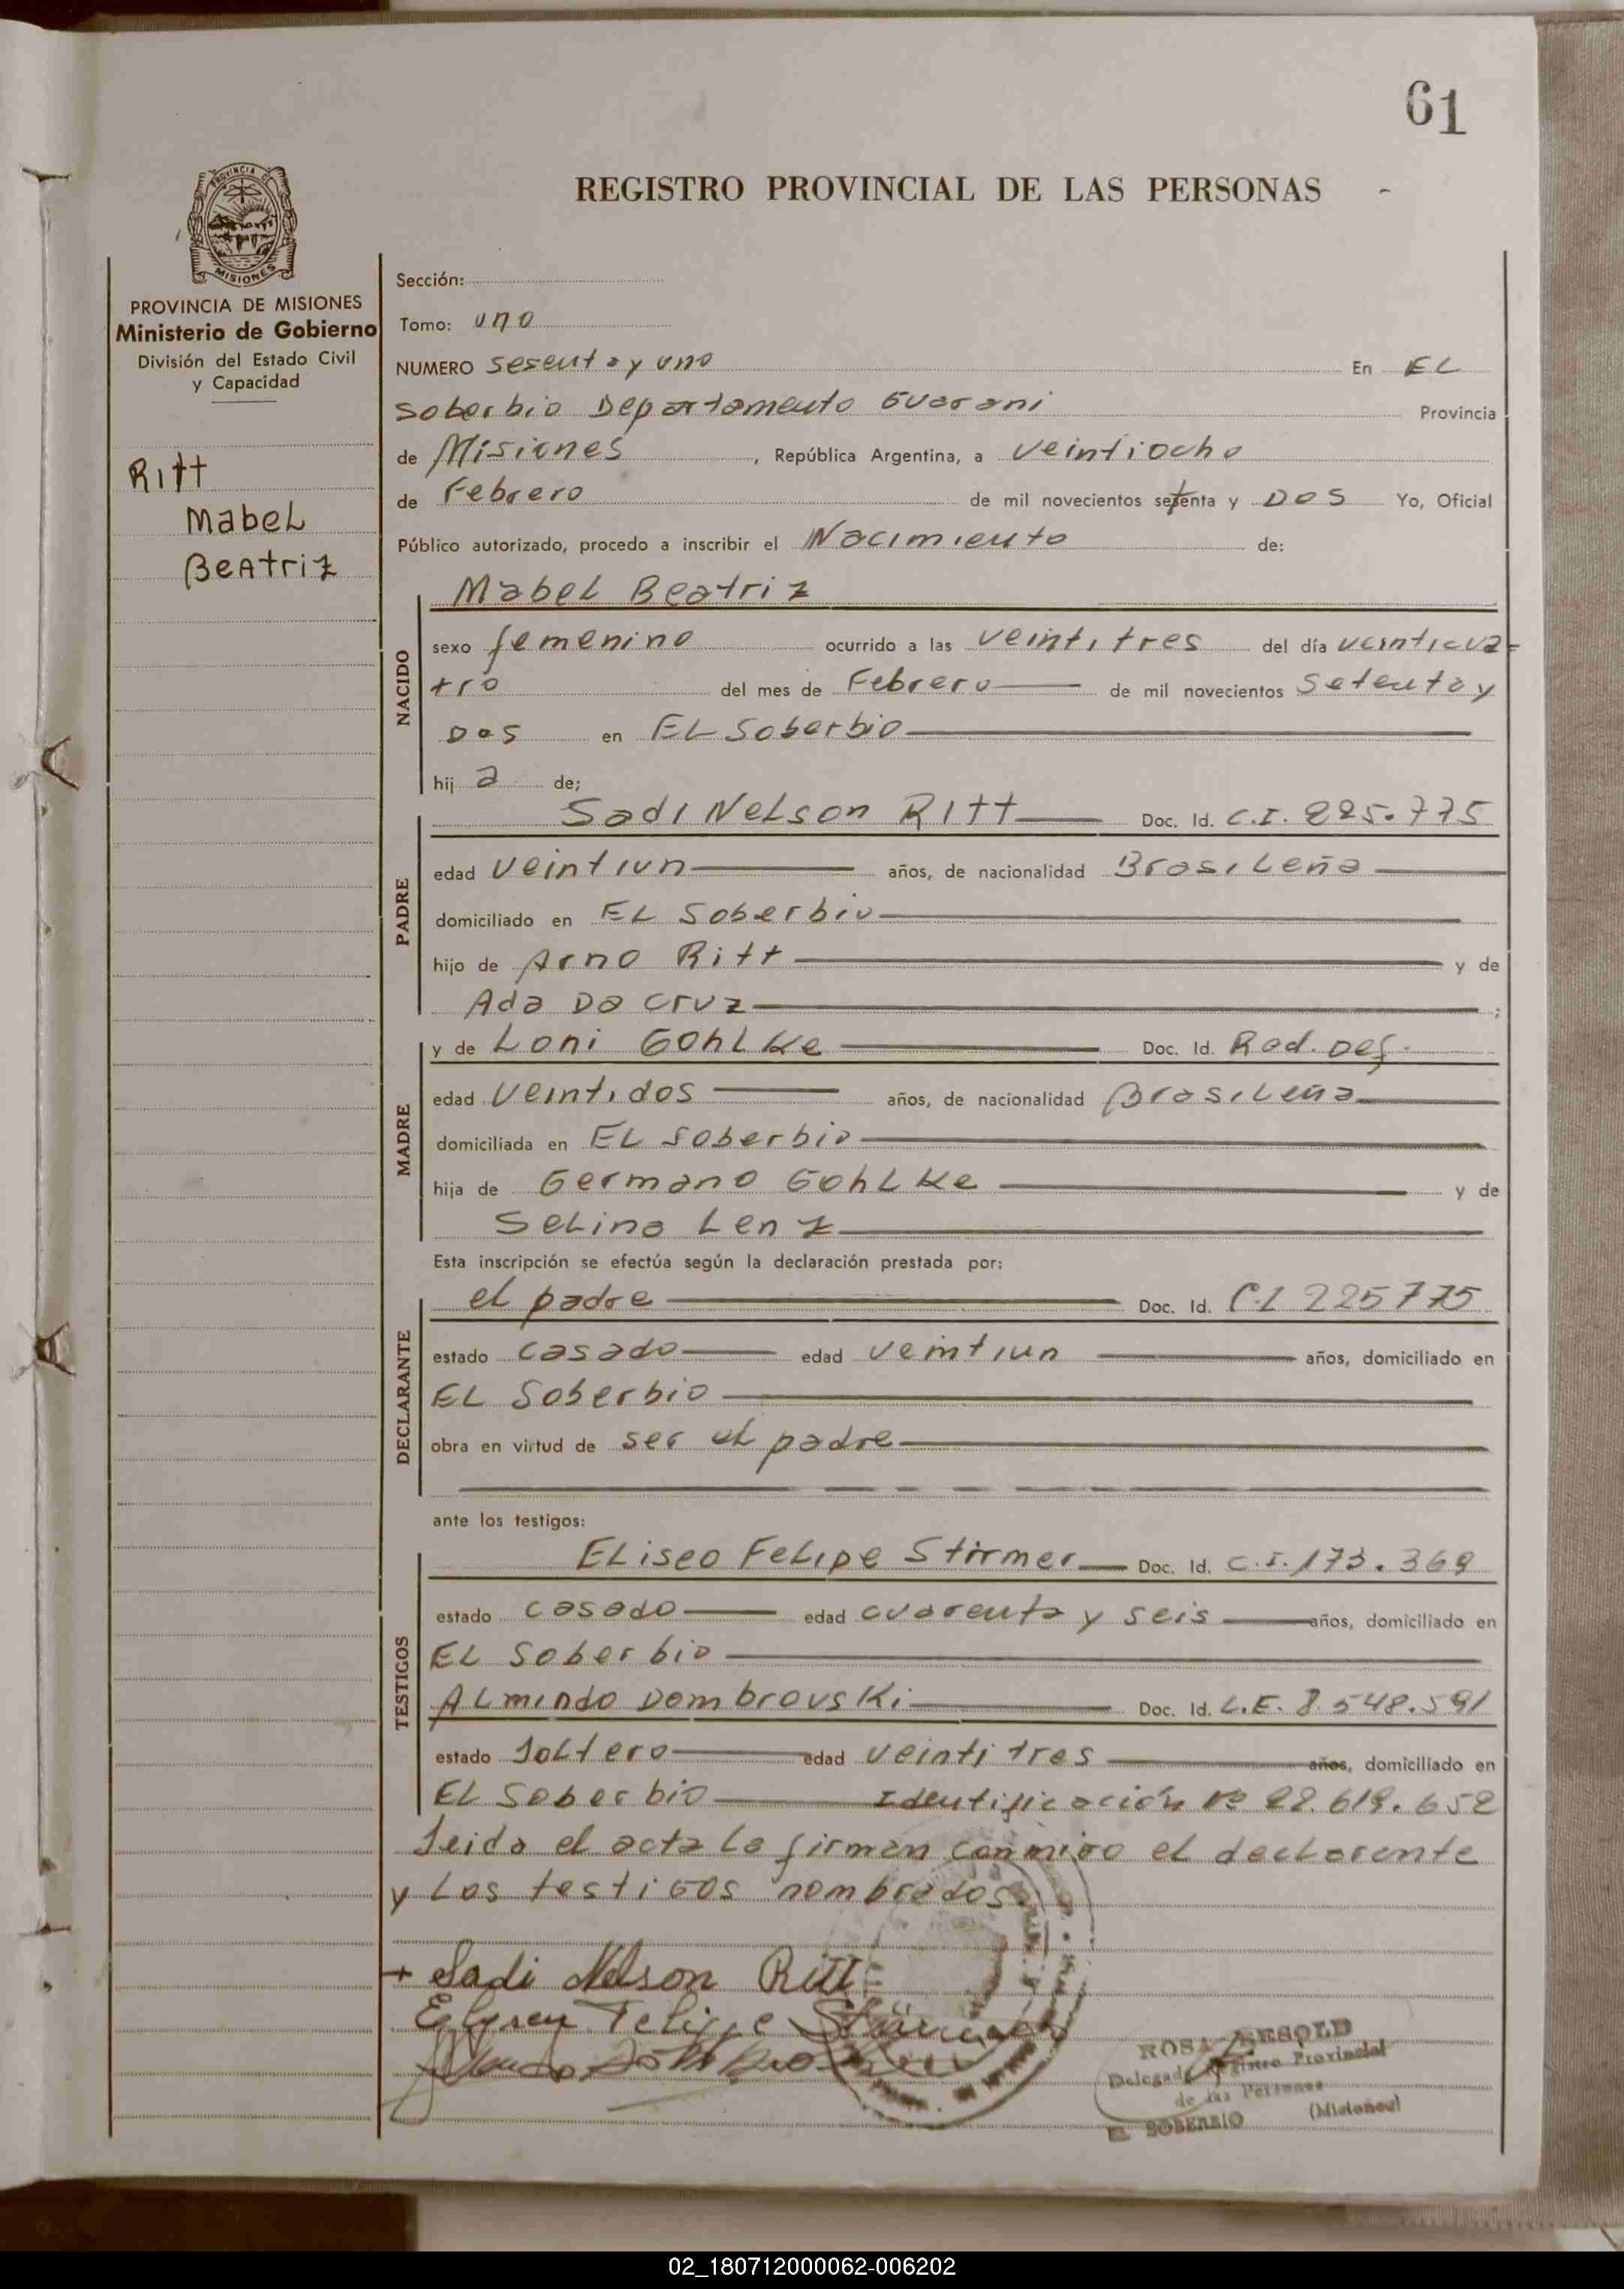 61
REGISTRO PROVINCIAL DE LAS PERSONAS
PROVINCIA DE MISIONES
MISIONES
PROVINCIA DE MISIONES
Ministerio de Gobierno
División del Estado Civil
y Capacidad
Ritt
Mabel
Beatriz
Sección:
Tomo: uno
NUMERO sesenta y uno En EL
Soberbio Departamento Guarani Provincia
de Misiones, República Argentina, a veintiocho
de Febrero de mil novecientos setenta y DOS Yo, Oficial
Público autorizado, procedo a inscribir el Nacimiento de:
Mabel Beatriz
NACIDO
sexo femenino ocurrido a las veintitres del día veinticua=
tro del mes de Febrero de mil novecientos setenta y
Dos en EL Soberbio
hij a de;
Sadi Nelson Ritt Doc. Id. C.I. 225.775
PADRE
edad veintiun años, de nacionalidad Brasileña
domiciliado en EL Soberbio
hijo de Arno Ritt y de
Ada Da Cruz ;
MADRE
y de Loni Gohlke Doc. Id. Rad. Def.
edad veintidos años, de nacionalidad Brasileña
domiciliada en EL Soberbio
hija de Germano Gohlke y de
Selina Lenz
Esta inscripción se efectúa según la declaración prestada por:
DECLARANTE
el padre Doc. Id. C.I 225775
estado casado edad veintiun años, domiciliado en
EL Soberbio
obra en virtud de ser el padre
ante los testigos:
TESTIGOS
Eliseo Felipe Störmer Doc. Id. C.I. 173.369
estado casado edad cuarenta y seis años, domiciliado en
EL Soberbio
Almindo Dombrovski Doc. Id. L.E. 8.548.591
estado soltero edad veintitres años, domiciliado en
EL Soberbio Identificación Nº 22.619.652
Leida el acta la firman conmigo el declarante
y los testigos nombrados.
+ Sadi Nelson Ritt
Felippe
ROSA
Delegada Registro Provincial
de las Personas
EL SOBERBIO (Misiones)
02_180712000062-006202